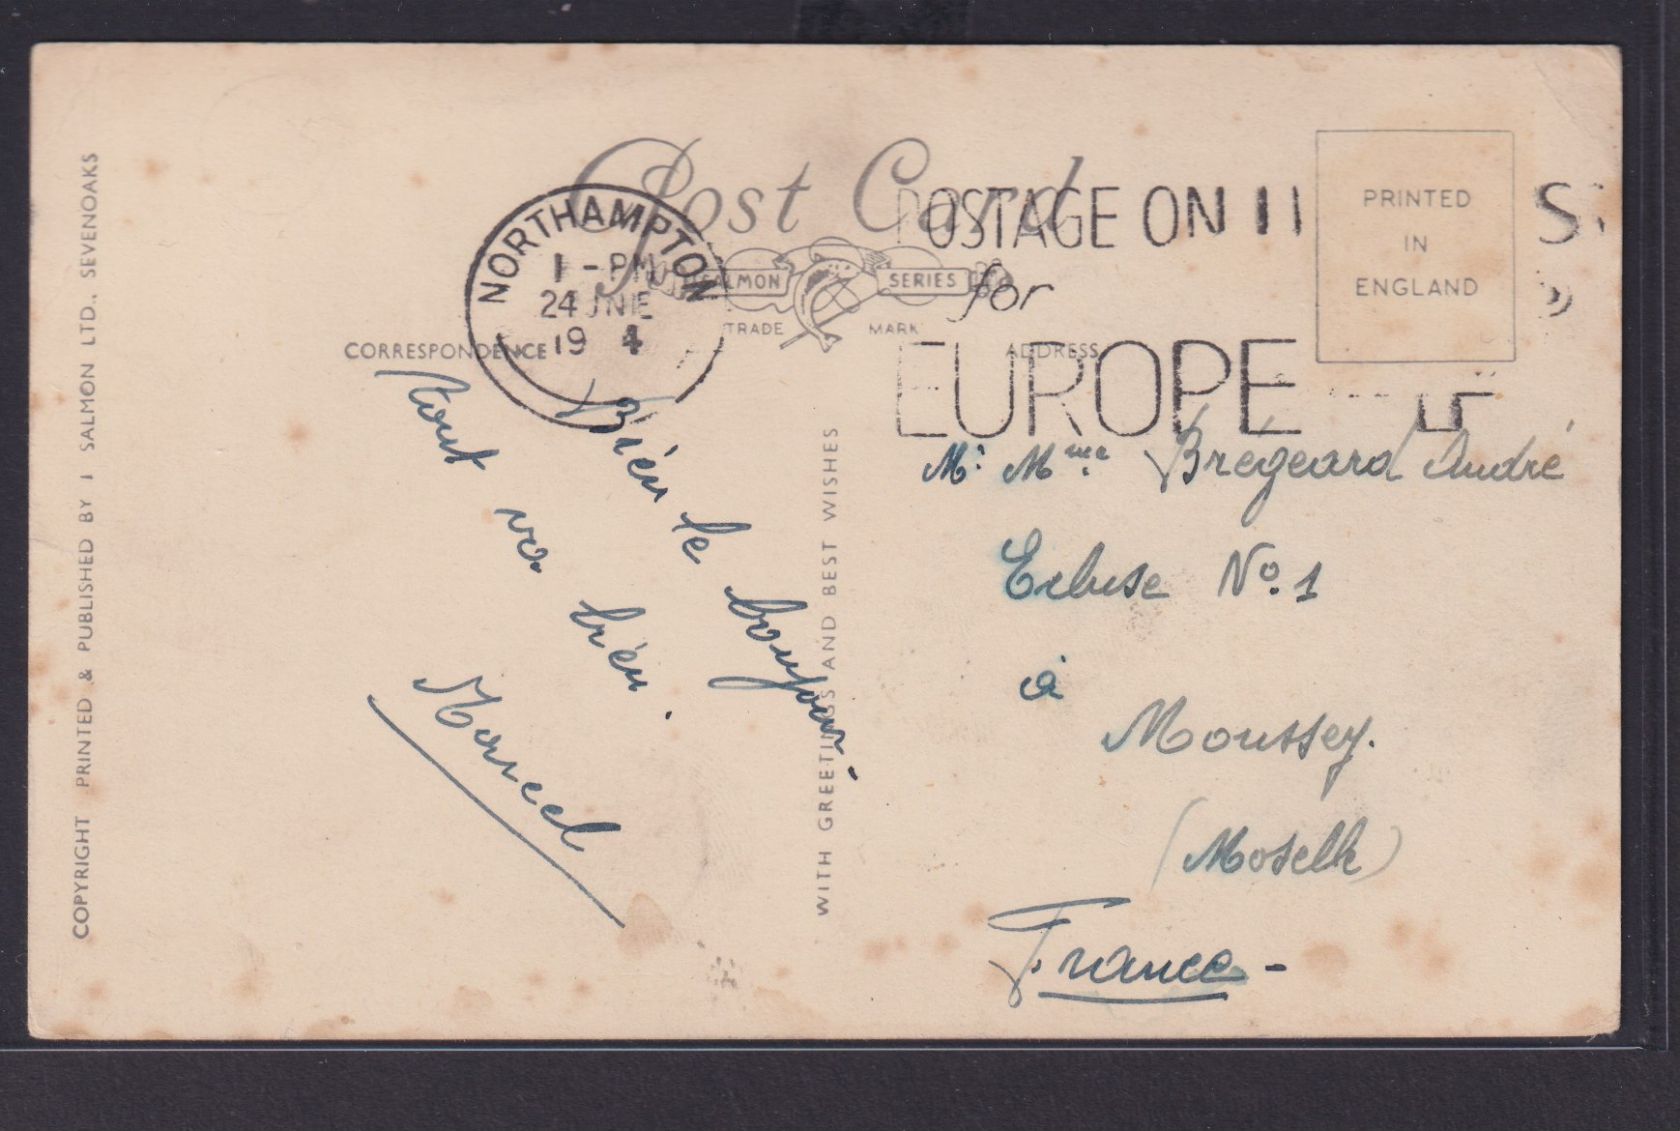 Post Card
SALMON SERIES
TRADE MARK
CORRESPONDENCE
ADDRESS
PRINTED
IN
ENGLAND
NORTHAMPTON
1 - PM
24 JNE
19 4
POSTAGE ON
for
EUROPE
COPYRIGHT PRINTED & PUBLISHED BY J SALMON LTD., SEVENOAKS
WITH GREETINGS AND BEST WISHES
Bien le bonjour
Tout va bien.
Marcel
Mr. Mme Brégeard André
Ecluse No. 1
à
Moussey.
(Moselle)
France -